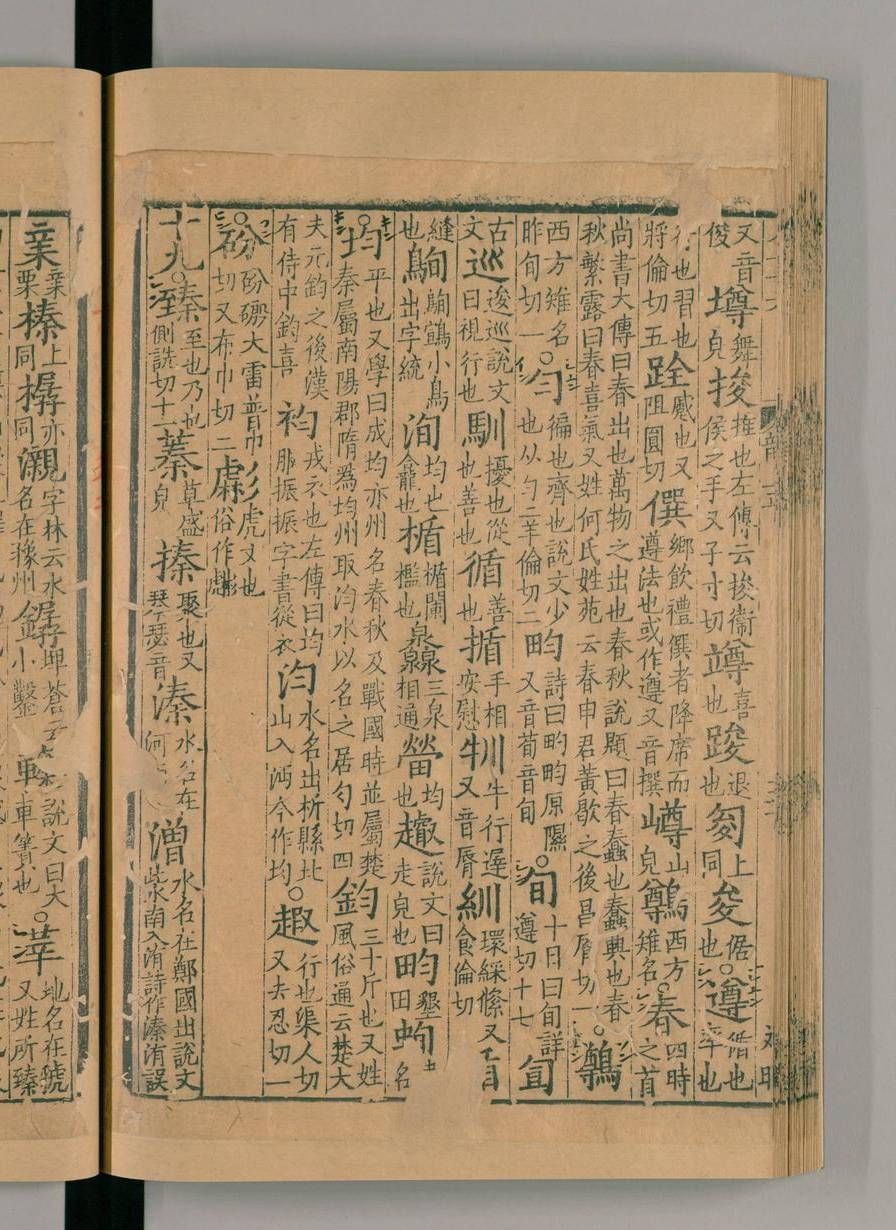 又音俊壿舞皃捘推也左傳云捘衞侯之手又子寸切竴喜也踆退也㕙上同夋倨也○遵循也率也
行也習也將倫切五跧蹙也又阻圓切僎鄉飲禮僎者降席而遵法也或作遵又音撰嶟山皃鷷西方雉名○春四時之首
尚書大傳曰春出也萬物之出也春秋說題曰春蠢也蠢興也春秋繁露曰春喜氣又姓何氏姓苑云春申君黃歇之後昌脣切一○鷷
西方雉名昨旬切一○勻徧也齊也說文少也从勹二羊倫切二畇詩曰畇畇原隰又音荀音旬○旬十日曰旬詳遵切十七
古文巡逡巡說文曰視行也馴擾也從也善也循善也揗手相安慰㸪牛行遲又音脣紃環綵絛又食倫切
縫也小鳥出字統洵均也龕也楯楯闌檻也灥三泉相通均也說文曰走皃也畇墾田名
○均平也又學曰成均亦州名春秋及戰國時並屬楚秦屬南陽郡隋為均州取汮水以名之居勻切四鈞三十斤也又姓風俗通云楚大
夫元鈞之後漢有侍中鈞喜袀戎衣也左傳曰均服振振字書從衣汮水名出析縣北山入沔今作均○行也渠人切又去忍切一
○砏砏磤大雷普巾切又布巾切二虨虎文也俗作
十九○臻至也乃也側詵切十一蓁草盛皃搸聚也又琴瑟音溱水名在河潧水名在鄭國出說文此水南入洧詩作溱洧誤
榛上同樼亦同瀙字林云水名在豫州埤蒼云小鑿說文曰大車簀也○莘地名在虢又姓所臻